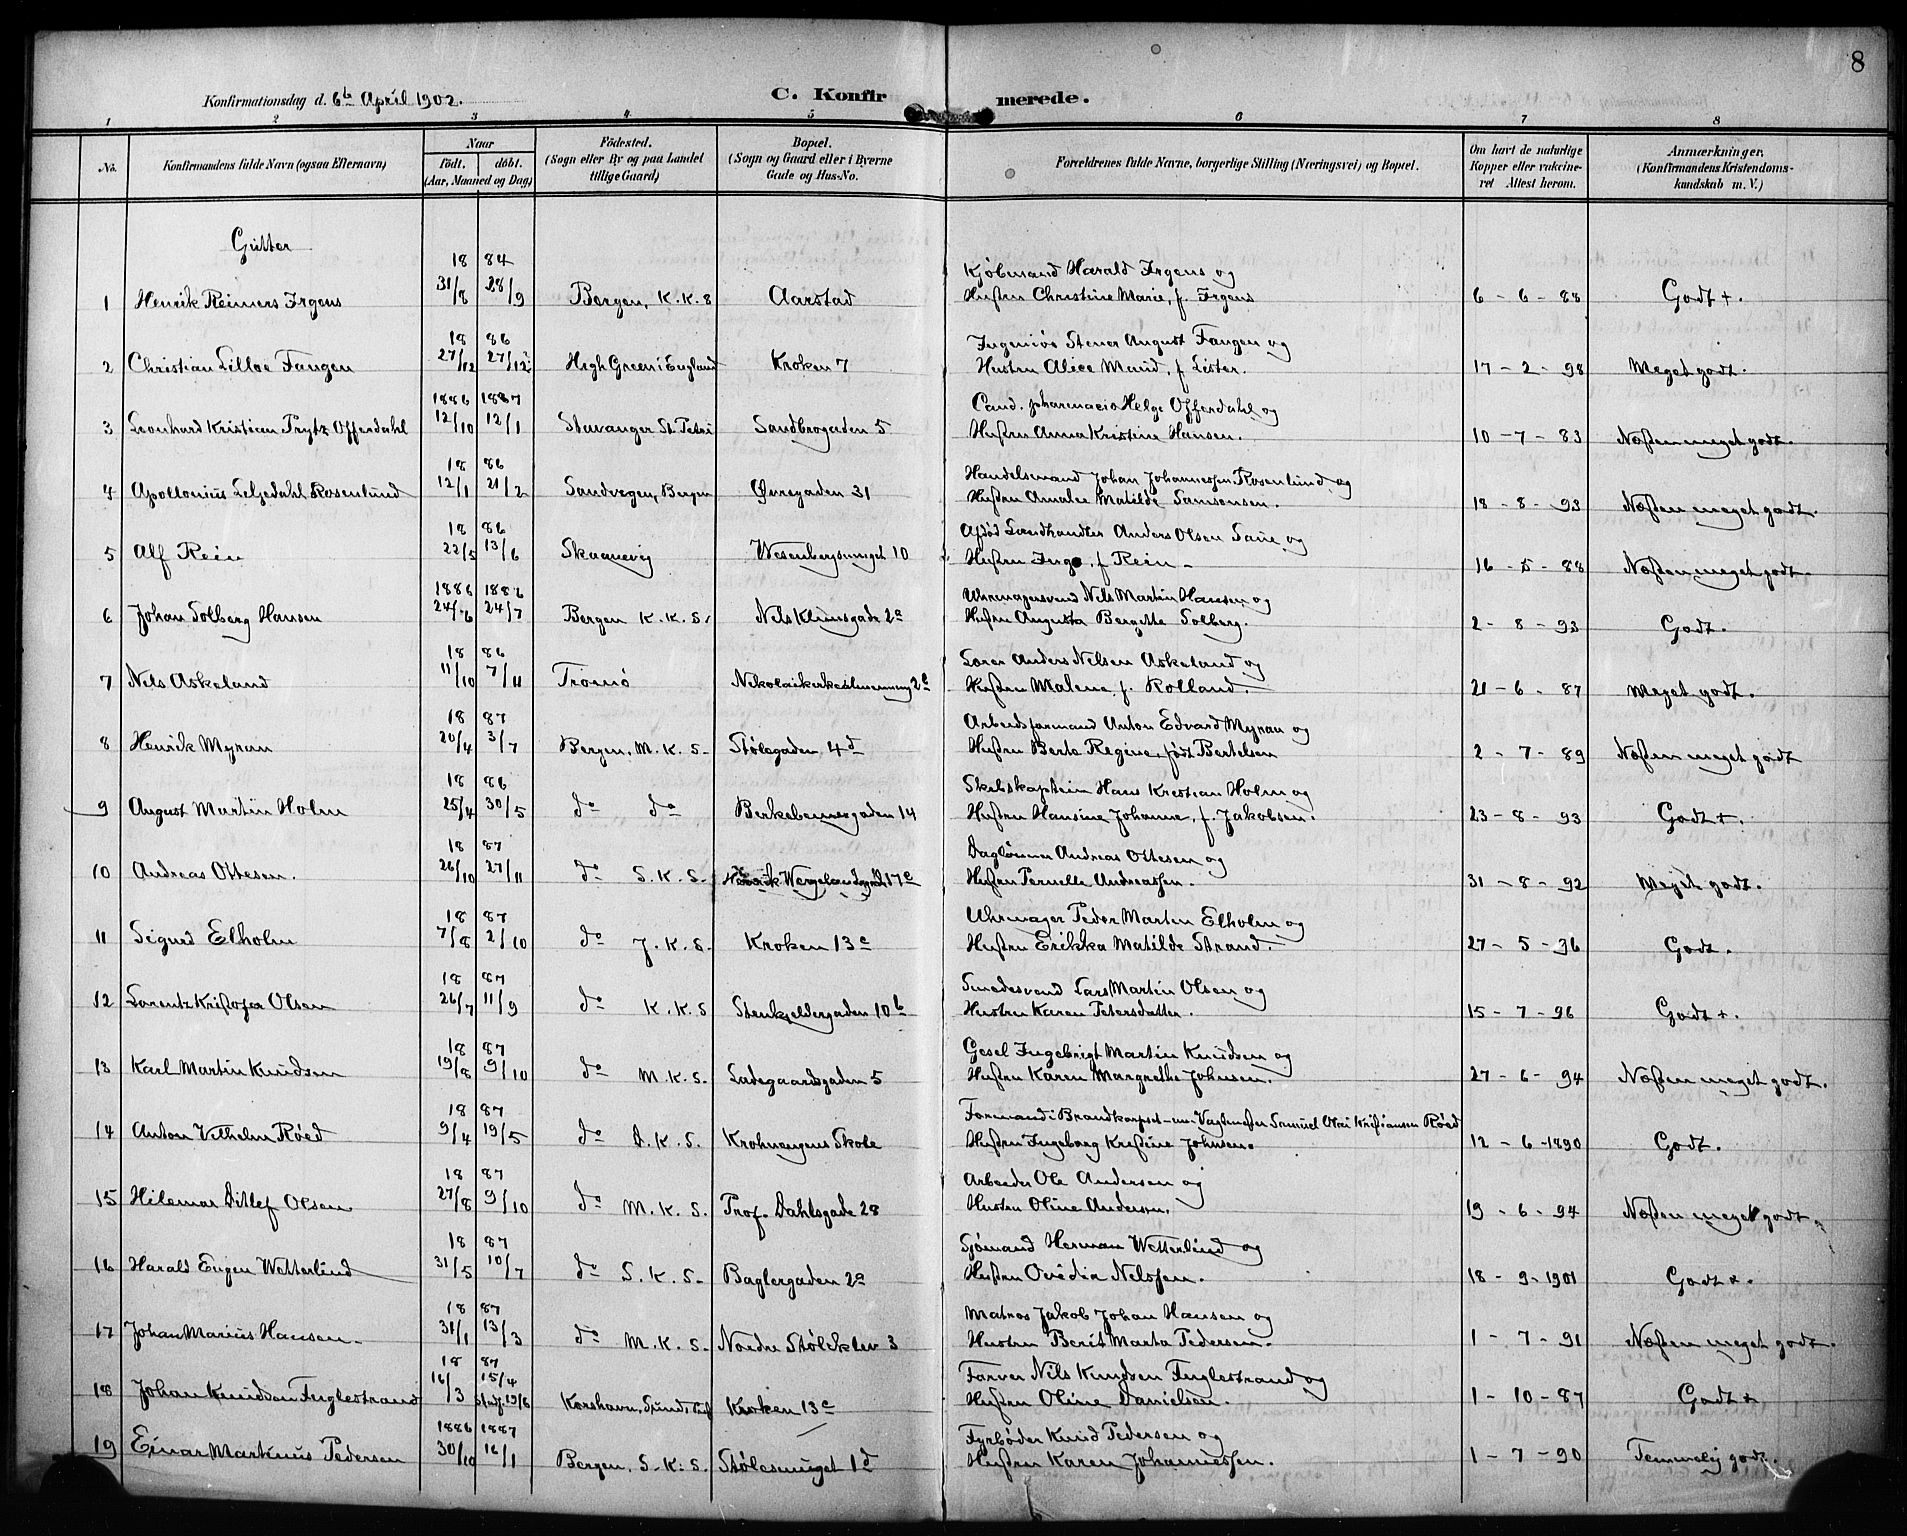 8
Konfirmationsdag d. 6te April 1902.
C. Konfirmerede.
1 2 3 4 5 6 7 8
No. Konfirmandens fulde Navn (ogsaa Efternavn) Naar født. døbt. (Aar, Maaned og Dag) Fødested. (Sogn eller By og paa Landet tillige Gaard) Bopæl. (Sogn og Gaard eller i Byerne Gade og Hus-No. Forældrenes fulde Navne, borgerlige Stilling (Næringsvei) og Bopæl. Om havt de naturlige Kopper eller vaccineret Attest herom. Anmærkninger. (Konfirmandens Kristendomskundskab m. V.)
Gutter
18 84 Kjøbmand Harald Irgens og
1 Henrik Reimers Irgens 31/8 28/9 Bergen, K. K. S Aarstad Hustru Christine Marie, f. Irgens 6 - 6 - 88 Godt +.
18 86 Ingeniør Stener August Fangen og
2 Christian Lilloe Fangen 27/12 27/12 High Green i England Kroken 7 Hustru Alice Maud, f. Lister. 17 - 2 - 98 Meget godt.
1886 1887 Cand. pharmacie Helge Offerdahl og
3 Leonhard Kristian Prytz Offerdahl 12/10 12/1 Stavanger St. Petri Sandbrogaden 5 Hustru Anna Kristine Hansen. 10 - 7 - 83 Næsten meget godt.
18 86 Handelsmand Johan Johannessen Rosenlund og
4 Apollonius Seljedahl Rosenlund 12/1 21/2 Sandvigen, Bergen Øvregaden 31 Hustru Amalie Matilde Samsonsen. 18 - 8 - 93 Næsten meget godt.
18 86 Afdød Landhandler Anders Olsen og
5 Alf Rein 22/5 13/6 Skaanevig Wesenbergsmuget 10 Hustru Inga, f. Rein - 16 - 5 - 88 Næsten meget godt.
1886 1886 Uhrmagersvend Nils Martin Hansen og
6 Johan Solberg Hansen 24/6 24/7 Bergen K. K. S. Nels Klimsgade 2a Hustru Augusta Bergitte Solberg. 2 - 8 - 93 Godt.
18 86 Lærer Anders Nelsen Askeland og
7 Nils Askeland 11/10 7/11 Tromø Nikolaikirkealmenning 2a Hustru Malene, f. Rolland. 21 - 6 - 87 Meget godt.
18 87 Arbeidsformand Anton Edvard Myran og
8 Henrik Myran 20/4 3/7 Bergen, M. K. S. Stølegaden 4d Hustru Berta Regine, født Bertelsen 2 - 7 - 89 Næsten meget godt
18 86 Skibskaptein Hans Kristian Holm og
9 August Martin Holm 25/4 30/5 do do Berkebeinergaden 14 Hustru Hansine Johanne, f. Jakobsen. 23 - 8 - 93 Godt +.
18 87 Daglønner Andreas Ottesen og
10 Andreas Ottesen. 26/10 27/11 do S. K. S. Henrik Wergelandsgd. 17c Hustru Pernelle Andreassen. 31 - 8 - 92 Meget godt.
18 87 Uhrmager Peder Martin Elholm og
11 Sigurd Elholm 7/8 2/10 do J. K. S. Kroken 13c Hustru Erikka Matilde Strand. 27 - 5 - 96 Godt.
18 87 Smedesvend Lars Martin Olsen og
12 Lorentz Kristofer Olsen 26/7 11/9 do K. K. S Stenkjeldergaden 10b Hustru Karen Petersdatter. 15 - 7 - 96 Godt +.
18 87 Gesel Ingebrigt Martin Knudsen og
13 Karl Martin Knudsen 19/8 9/10 do M. K. S. Ladegaardsgaden 5 Hustru Karen Margrethe Johnsen. 27 - 6 - 94 Næsten meget godt.
18 87 Formand i Brandkorpset Samuel Kristiansen Røed
14 Anton Vilhelm Røed 9/4 19/5 do D. K. S. Krohnengens Skole Hustru Ingeborg Kristine Johnsen. 12 - 6 - 1890 Godt.
18 87 Arbeider Ole Andersen og
15 Hilemar Ditlef Olsen 27/8 9/10 do M. K. S. Prof. Dahlsgade 28 Hustru Oline Andersen. 19 - 6 - 94 Næsten meget godt
18 87 Sjømand Herman Wetterlind og
16 Harald Eugen Wetterlind 31/5 10/7 do S. K. S. Baglergaden 2a Hustru Ovidia Nelssen. 18 - 9 - 1901 Godt +.
18 87 Matros Jakob Johan Hansen og
17 Johan Marius Hansen - 31/1 13/3 do M. K. S. Nordre Støleklev 3 Hustru Berit Marta Pedersen. 1 - 7 - 91 Næsten meget godt.
18 87 Farver Nils Knudsen Fuglestrand og
18 Johan Knudsen Fuglestrand 16/3 15/4 Korshavn, Kroken 13c Hustru Oline Danielsen. 1 - 10 - 87 Godt +
1886 1887 Fyrbøder Knud Pedersen og
19 Einar Martinus Pedersen 30/10 16/1 Bergen, S. K. S. Stølesmuget 1d Hustru Karen Johannessen. 1 - 7 - 90 Temmelig godt.